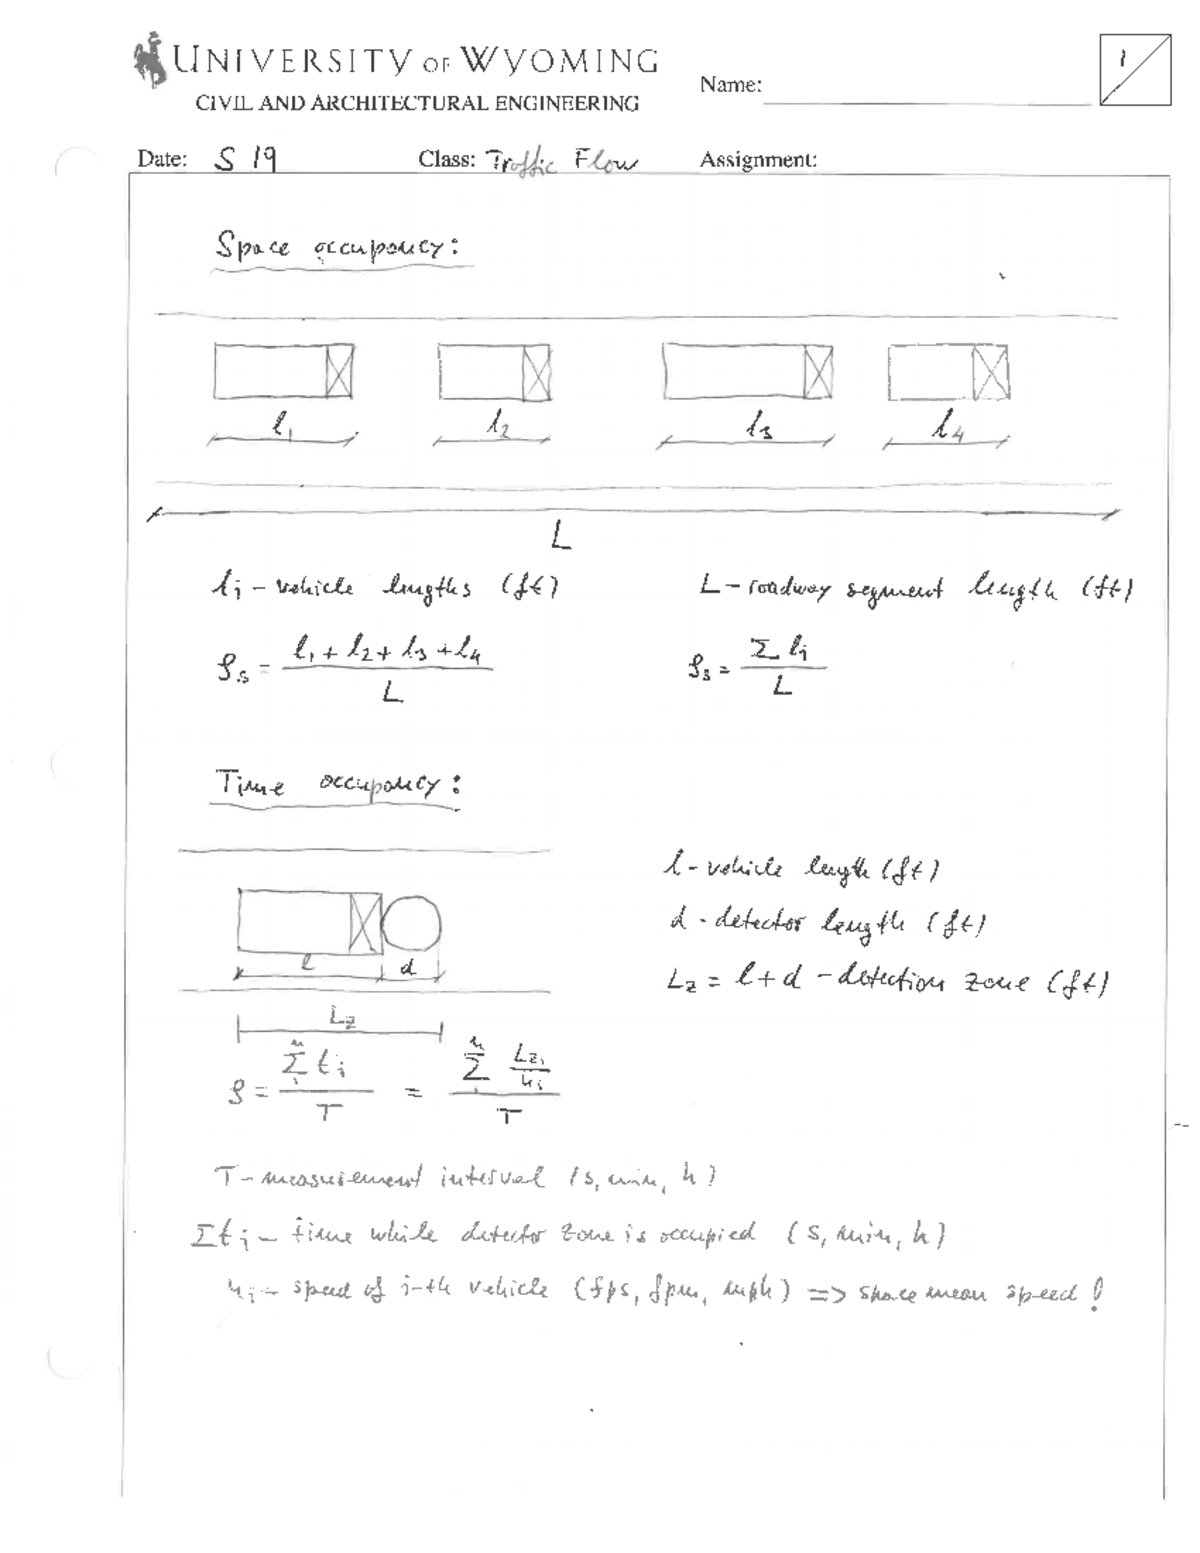 UNIVERSITY OF WYOMING
CIVIL AND ARCHITECTURAL ENGINEERING
Name:
1
Date: S 19 Class: Traffic Flow Assignment:
Space occupancy:
l1 l2 l3 l4
L
li - vehicle lengths (ft) L - roadway segment length (ft)
ρs = (l1 + l2 + l3 + l4) / L ρs = Σ li / L
Time occupancy:
l - vehicle length (ft)
d - detector length (ft)
l d
Lz = l + d - detection zone (ft)
Lz
ρ = Σ ti / T = Σ (Lzi / ui) / T
T - measurement interval (s, min, h)
Σti - time while detector zone is occupied (s, min, h)
ui - speed of i-th vehicle (fps, fpm, mph) => space mean speed!